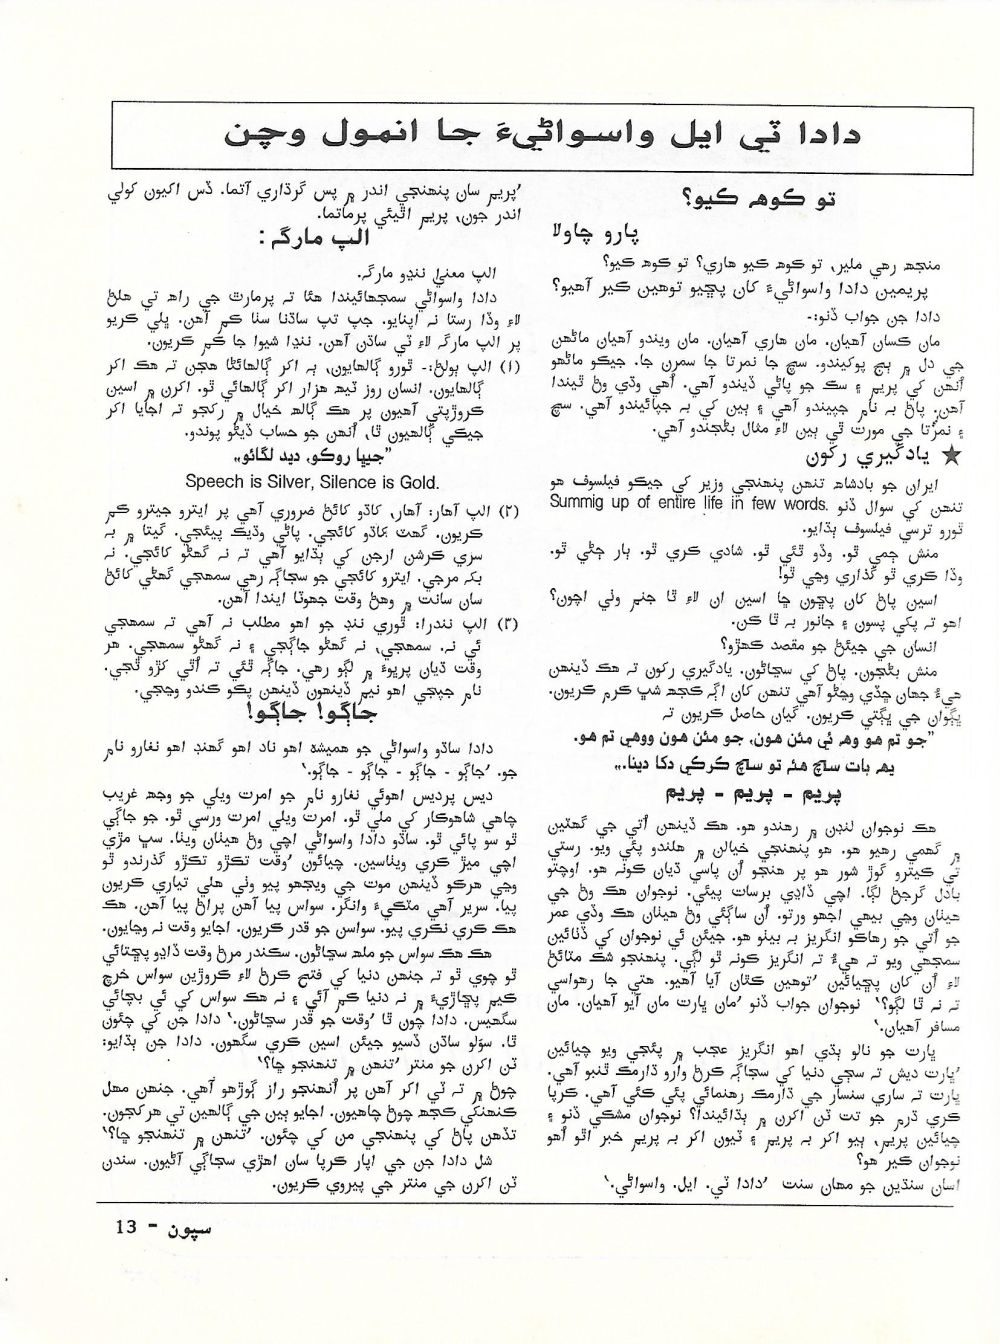 دادا ٽي ايل واسواڻيءَ جا انمول وچن
تو ڪوهہ ڪيو؟
پارو چاولا
منجهہ رهي ملير، تو ڪوهہ ڪيو هاري؟ تو ڪوهہ ڪيو؟
پريمين دادا واسواڻيءَ کان پڇيو توهين ڪير آهيو؟
دادا جن جواب ڏنو:-
مان ڪسان آهيان. مان هاري آهيان. مان ويندو آهيان ماڻهن
جي دل ۾ ٻج پوکيندو. سچ جا نمرتا جا سمرن جا. جيڪو ماڻهو
اُنهن کي پريم ۽ سڪ جو پاڻي ڏيندو آهي. اُهي وڏي وڻ ٿيندا
آهن. پاڻ بہ نام جپيندو آهي ۽ ٻين کي بہ جپائيندو آهي. سچ
۽ نمرتا جي مورت ٿي ٻين لاءِ مثال بڻجندو آهي.
★ يادگيري رکون
ايران جو بادشاهہ تنهن پنهنجي وزير کي جيڪو فيلسوف هو
تنهن کي سوال ڏنو .Summig up of entire life in few words
ٿورو ترسي فيلسوف ٻڌايو.
منش ڄمي ٿو. وڏو ٿئي ٿو. شادي ڪري ٿو. ٻار ڄڻي ٿو.
وڏا ڪري ٿو گذاري وڃي ٿو!
اسين پاڻ کان پڇون ڇا اسين ان لاءِ ٿا جنم وٺي اچون؟
اهو تہ پکي پسون ۽ جانور بہ ٿا ڪن.
انسان جي جيئڻ جو مقصد ڪهڙو؟
منش بڻجون. پاڻ کي سڃاڻون. يادگيري رکون تہ هڪ ڏينهن
هيءُ جهان ڇڏي وڃڻو آهي تنهن کان اڳ ڪجهہ شڀ ڪرم ڪريون.
ڀڳوان جي ڀڳتي ڪريون. گيان حاصل ڪريون تہ
”جو تم هو وهہ ئي مئن هون، جو مئن هون ووهي تم هو.
يهہ بات ساچ هئہ تو ساچ ڪرڪي دکا دينا.„
پريم - پريم - پريم
هڪ نوجوان لنڊن ۾ رهندو هو. هڪ ڏينهن اُتي جي گهٽين
۾ گهمي رهيو هو. هو پنهنجي خيالن ۾ هلندو پئي ويو. رستي
تي ڪيترو گوڙ شور هو پر هنجو اُن پاسي ڌيان ڪونہ هو. اوچتو
بادل گرجڻ لڳا. اچي ڏاڍي برسات پيئي. نوجوان هڪ وڻ جي
هيٺان وڃي بيهي اجهو ورتو. اُن ساڳئي وڻ هيٺان هڪ وڏي عمر
جو اُتي جو رهاڪو انگريز بہ بيٺو هو. جيئن ئي نوجوان کي ڏٺائين
سمجهي ويو تہ هيءُ تہ انگريز ڪونہ ٿو لڳي. پنهنجو شڪ مٽائڻ
لاءِ اُن کان پڇيائين ’توهين ڪٿان آيا آهيو. هتي جا رهواسي
تہ نہ ٿا لڳو؟‘ نوجوان جواب ڏنو ’مان ڀارت مان آيو آهيان. مان
مسافر آهيان.‘
ڀارت جو نالو ٻڌي اهو انگريز عجب ۾ پئجي ويو چيائين
’ڀارت ديش تہ سڄي دنيا کي سڄاڳ ڪرڻ وارو ڌارمڪ ٿنڀو آهي.
ڀارت تہ ساري سنسار جي ڌارمڪ رهنمائي پئي ڪئي آهي. ڪرپا
ڪري ڌرم جو تت ٽن اکرن ۾ ٻڌائيندا؟ نوجوان مشڪي ڏنو ۽
چيائين پريم، ٻيو اکر بہ پريم ۽ ٽيون اکر بہ پريم خبر اٿو اُهو
نوجوان ڪير هو؟
اسان سنڌين جو مهان سنت ’دادا ٽي. ايل. واسواڻي.‘
’پريم سان پنهنجي اندر ۾ پس گرڌاري آتما. ڏس اکيون کولي
اندر جون، پريم اٿيئي پرماتما.
الپ مارگہ :
الپ معنيٰ ننڍو مارگہ.
دادا واسواڻي سمجهائيندا هئا تہ پرمارٿ جي راهہ تي هلڻ
لاءِ وڏا رستا نہ اپنايو. جپ تپ ساڌنا سٺا ڪم آهن. ڀلي ڪريو
پر الپ مارگہ لاءِ ٽي ساڌن آهن. ننڍا شيوا جا ڪم ڪريون.
(۱) الپ ٻولڻ:- ٿورو ڳالهايون، ٻہ اکر ڳالهائڻا هجن تہ هڪ اکر
ڳالهايون. انسان روز ٽيهہ هزار اکر ڳالهائي ٿو. اکرن ۾ اسين
ڪروڙپتي آهيون پر هڪ ڳالهہ خيال ۾ رکجو تہ اجايا اکر
جيڪي ڳالهيون ٿا، اُنهن جو حساب ڏيڻو پوندو.
”جيڀا روڪو، ديد لگائو„
Speech is Silver, Silence is Gold.
(۲) الپ آهار: آهار، کاڌو کائڻ ضروري آهي پر ايترو جيترو ڪم
ڪريون. گهٽ کاڌو کائجي. پاڻي وڌيڪ پيئجي. گيتا ۾ بہ
سري ڪرشن ارجن کي ٻڌايو آهي تہ نہ گهڻو کائجي. نہ
بکہ مرجي. ايترو کائجي جو سجاڳہ رهي سمهجي گهڻي کائڻ
سان سانت ۾ وهڻ وقت جهوٽا ايندا آهن.
(۳) الپ نندرا: ٿوري ننڊ جو اهو مطلب نہ آهي تہ سمهجي
ئي نہ. سمهجي، نہ گهڻو جاڳجي ۽ نہ گهڻو سمهجي. هر
وقت ڌيان پرڀوءَ ۾ لڳو رهي. جاڳہ ٿئي تہ اُٿي کڙو ٿجي.
نام جپجي اهو نيم ڏينهون ڏينهن پڪو ڪندو وڃجي.
جاڳو! جاڳو!
دادا ساڌو واسواڻي جو هميشہ اهو ناد اهو گهنڊ اهو نغارو نام
جو. ’جاڳو - جاڳو - جاڳو - جاڳو.‘
ديس پرديس اهوئي نغارو نام جو امرت ويلي جو وجهہ غريب
چاهي شاهوڪار کي ملي ٿو. امرت ويلي امرت ورسي ٿو. جو جاڳي
ٿو سو پائي ٿو. ساڌو دادا واسواڻي اچي وڻ هيٺان ويٺا. سڀ مڙي
اچي ميڙ ڪري ويٺاسين. چيائون ’وقت تڪڙو تڪڙو گذرندو ٿو
وڃي هرڪو ڏينهن موت جي ويجهو پيو وٺي هلي تياري ڪريون
پيا. سرير آهي مٽڪيءَ وانگر. سواس پيا آهن پراڻ پيا آهن. هڪ
هڪ ڪري نڪري پيو. سواسن جو قدر ڪريون. اجايو وقت نہ وڃايون.
هڪ هڪ سواس جو ملهہ سڃاڻون. سڪندر مرڻ وقت ڏاڍو پڇتائي
ٿو چوي ٿو تہ جنهن دنيا کي فتح ڪرڻ لاءِ ڪروڙين سواس خرچ
ڪيم پڇاڙيءَ ۾ نہ دنيا ڪم آئي ۽ نہ هڪ سواس کي ئي بچائي
سگهيس. دادا چون ٿا ’وقت جو قدر سڃاڻون.‘ دادا جن کي چئون
ٿا. سوَلو ساڌن ڏسيو جيئن اسين ڪري سگهون. دادا جن ٻڌايو:
ٽن اکرن جو منتر ’تنهن ۾ تنهنجو ڇا؟‘
چوڻ ۾ تہ ٽي اکر آهن پر اُنهنجو راز ڳوڙهو آهي. جنهن مهل
ڪنهنکي ڪجهہ چوڻ چاهيون. اجايو ٻين جي ڳالهين تي هرکجون.
تڏهن پاڻ کي پنهنجي من کي چئون. ’تنهن ۾ تنهنجو ڇا؟‘
شل دادا جن جي اپار ڪرپا سان اهڙي سڄاڳي آڻيون. سندن
ٽن اکرن جي منتر جي پيروي ڪريون.
سپون - 13